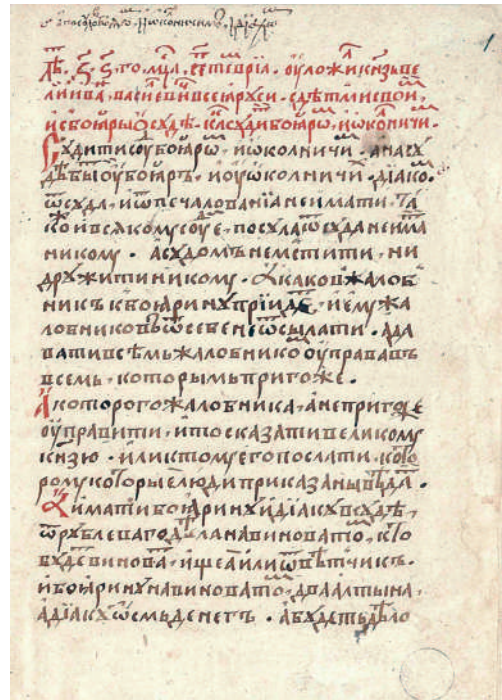 Лѣⷮ. ҂ѕ҃. ѕ҃. го. мцⷭ҇а. сеⷫтеврїа. оуложи кн҃зь ве
ликїи иваⷩ҇. василїевиⷱ всеа рꙋси. с дѣтми своⷨи
и с бояры ѡ сꙋдѣ. каⷦ сꙋдити боярѡⷨ. и ѡколничиⷨ.
Сꙋдити сꙋⷣ боярѡⷨ. и ѡколничиⷨ. а на сꙋ
дѣ быⷮи оу бояръ. и оу ѡколничиⷯ дїакоⷨ.
а посула ѿ сꙋда. и ѿ печалованїа не имати. та
кои всякому сⷣуїе. посула ѿ сꙋда не имаⷮи
никому. а сꙋдомъ не мстити, ни
дружити никому. А каковъ жалоб
никъ к боярину прїидеⷮ. и ему жа
лобниковъ ѿ себе не ѿсылати. а да
вати всѣмъ жалобникоⷨ оуправа въ
всемь. которымь пригоже.
А которого жалобника, а не пригоже
оуправити, и то сказати великому
князю. или к тому его послати. кото
рому которые люди приказаны вѣдаⷮ.
А имати боярину и дїакꙋ в сꙋдѣ
ѿ рꙋблева го дѣла на виноватоⷨ. кто
будеⷮ виноваⷮ. ищеа или ѿвѣтчикъ.
и боярину на виноватоⷨ. два алтына,
а дїакꙋ ѡсмь денегъ. а будеть дѣло